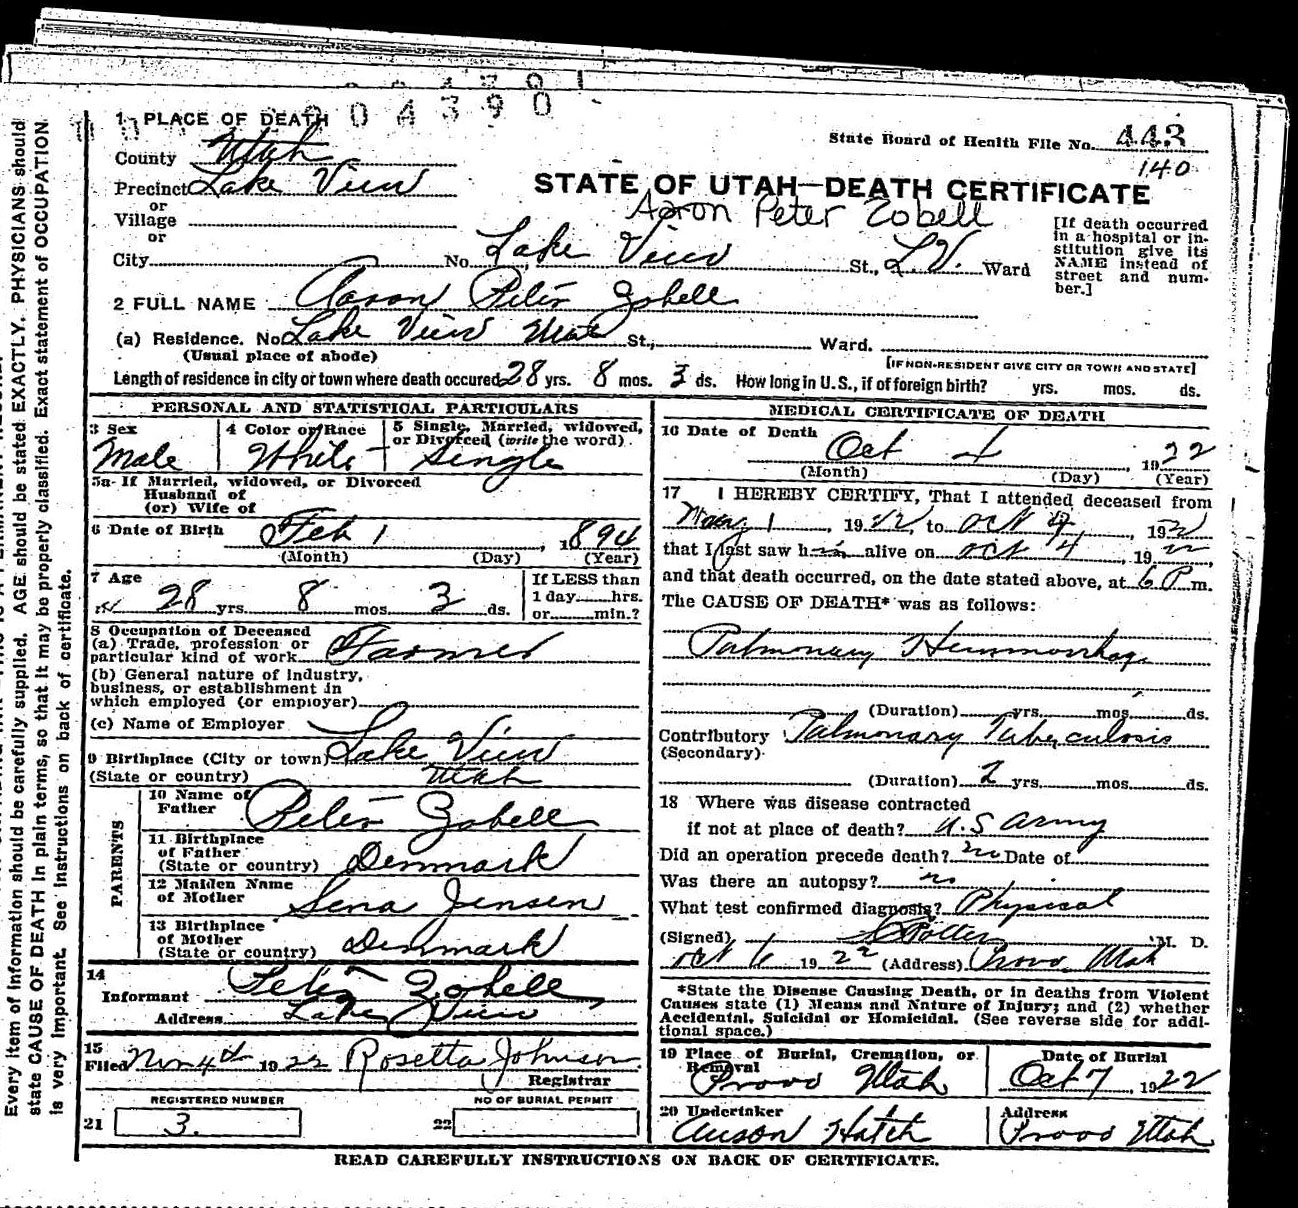 204390
1 PLACE OF DEATH
State Board of Health File No. 443
140
County Utah
Precinct Lake View
or
Village
or
City
STATE OF UTAH—DEATH CERTIFICATE
Aaron Peter Zobell
No. Lake View St., L.V. Ward
[If death occurred in a hospital or institution give its NAME instead of street and number.]
2 FULL NAME Aaron Peter Zobell
(a) Residence. No. Lake View Utah St., Ward.
(Usual place of abode)
[IF NON-RESIDENT GIVE CITY OR TOWN AND STATE]
Length of residence in city or town where death occured 28 yrs. 8 mos. 3 ds. How long in U.S., if of foreign birth? yrs. mos. ds.
PERSONAL AND STATISTICAL PARTICULARS
3 Sex
Male
4 Color or Race
White
5 Single, Married, widowed, or Divorced (write the word)
Single
5a- If Married, widowed, or Divorced
Husband of
(or) Wife of
6 Date of Birth Feb 1, 1894
(Month) (Day) (Year)
7 Age
28 yrs. 8 mos. 3 ds.
If LESS than
1 day hrs.
or min.?
8 Occupation of Deceased
(a) Trade, profession or
particular kind of work Farmer
(b) General nature of Industry,
business, or establishment in
which employed (or employer)
(c) Name of Employer
9 Birthplace (City or town) Lake View
(State or country) Utah
PARENTS
10 Name of
Father Peter Zobell
11 Birthplace
of Father
(State or country) Denmark
12 Maiden Name
of Mother Sena Jensen
13 Birthplace
of Mother
(State or country) Denmark
14
Informant Peter Zobell
Address Lake View
15
Filed Nov 4th 1922 Rosetta Johnson
Registrar
REGISTERED NUMBER
21 3.
NO OF BURIAL PERMIT
22
MEDICAL CERTIFICATE OF DEATH
16 Date of Death
Oct 4, 1922
(Month) (Day) (Year)
17 I HEREBY CERTIFY, That I attended deceased from
1, 1922, to Oct 4, 1922
that I last saw him alive on Oct 4 1922,
and that death occurred, on the date stated above, at 6 P.m.
The CAUSE OF DEATH* was as follows:
Pulmonary Hemmorrhage
(Duration) yrs. mos. ds.
Contributory Pulmonary Tuberculosis
(Secondary)
(Duration) 2 yrs. mos. ds.
18 Where was disease contracted
if not at place of death? U.S Army
Did an operation precede death? no Date of
Was there an autopsy? no
What test confirmed diagnosis? Physical
(Signed) M. D.
Oct 6 1922 (Address) Provo, Utah
*State the Disease Causing Death, or in deaths from Violent
Causes state (1) Means and Nature of Injury; and (2) whether
Accidental, Suicidal or Homicidal. (See reverse side for addi-
tional space.)
19 Place of Burial, Cremation, or
Removal
Provo Utah
Date of Burial
Oct 7 1922
20 Undertaker
Anson Hatch
Address
Provo Utah
READ CAREFULLY INSTRUCTIONS ON BACK OF CERTIFICATE.
Every item of information should be carefully supplied. AGE should be stated EXACTLY. PHYSICIANS should
state CAUSE OF DEATH in plain terms, so that it may be properly classified. Exact statement of OCCUPATION
is very important. See instructions on back of certificate.